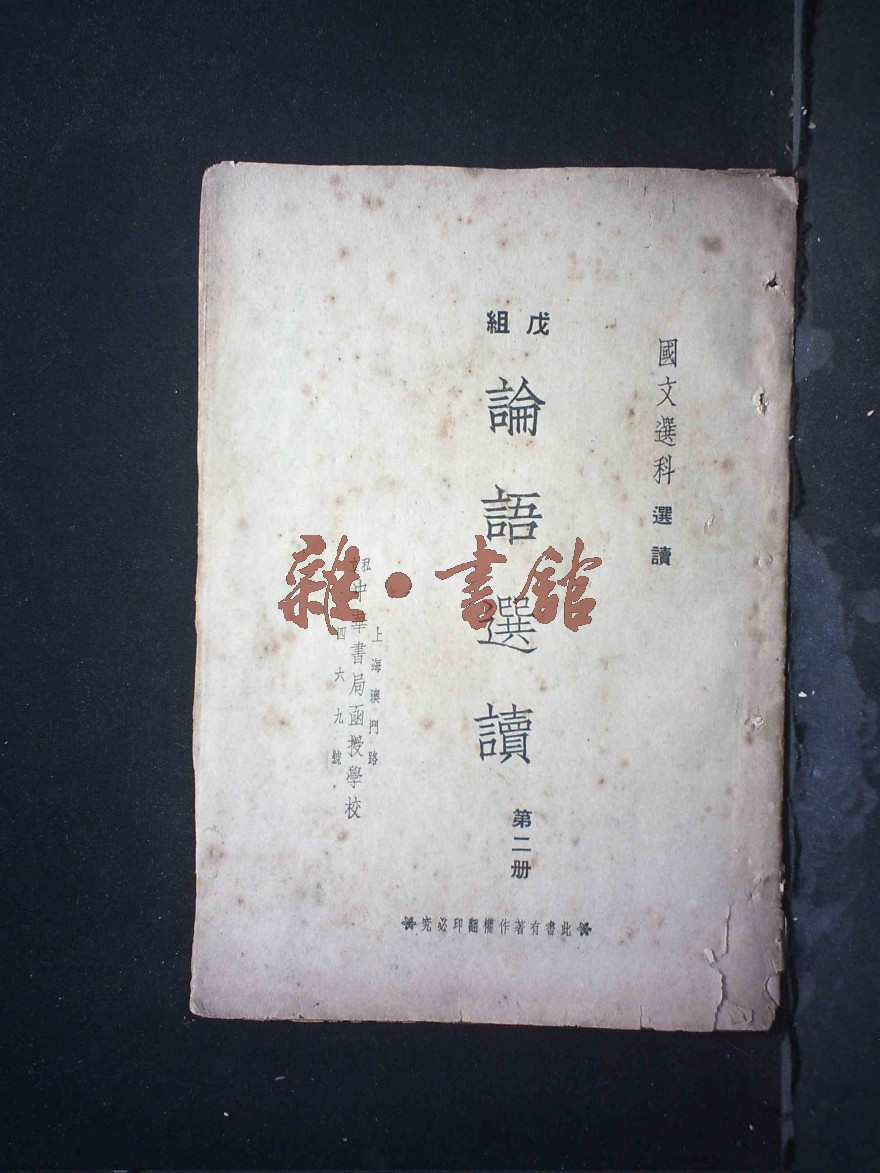 國文選科 選讀
戊組
論語選讀 第二册
上海澳門路
私立中華書局函授學校
四六九號
此書有著作權翻印必究
雜·書館